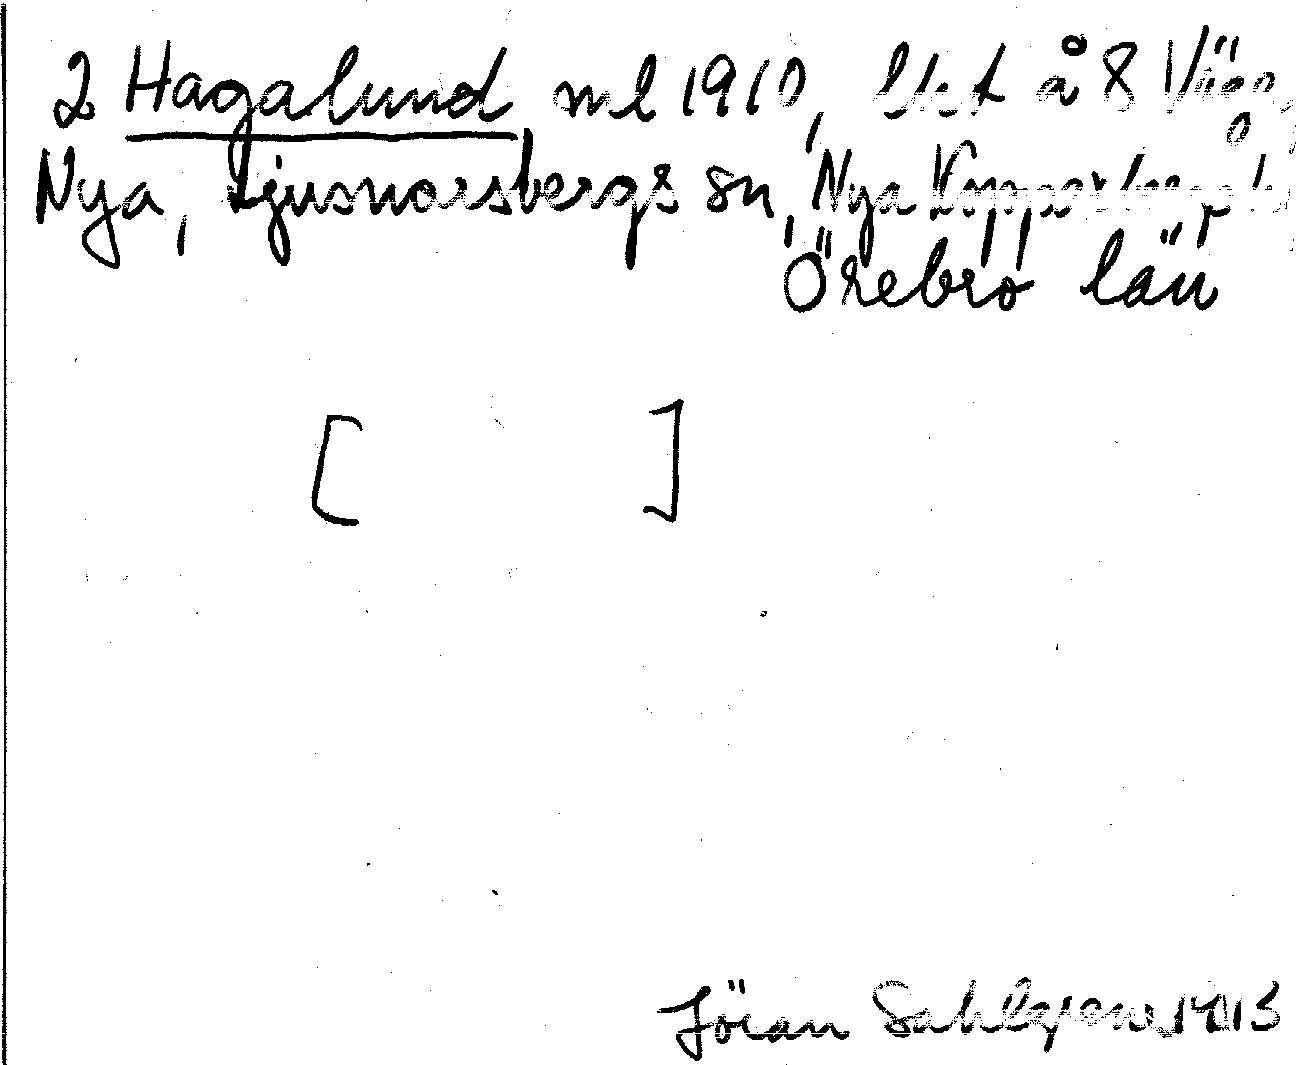 2 Hagalund ml 1910, lht å 8 Väg,
Nya, Ljusnarsbergs sn, Nya Kopparbergs
Örebro län
[ ]
Jöran Sahlgren 1913